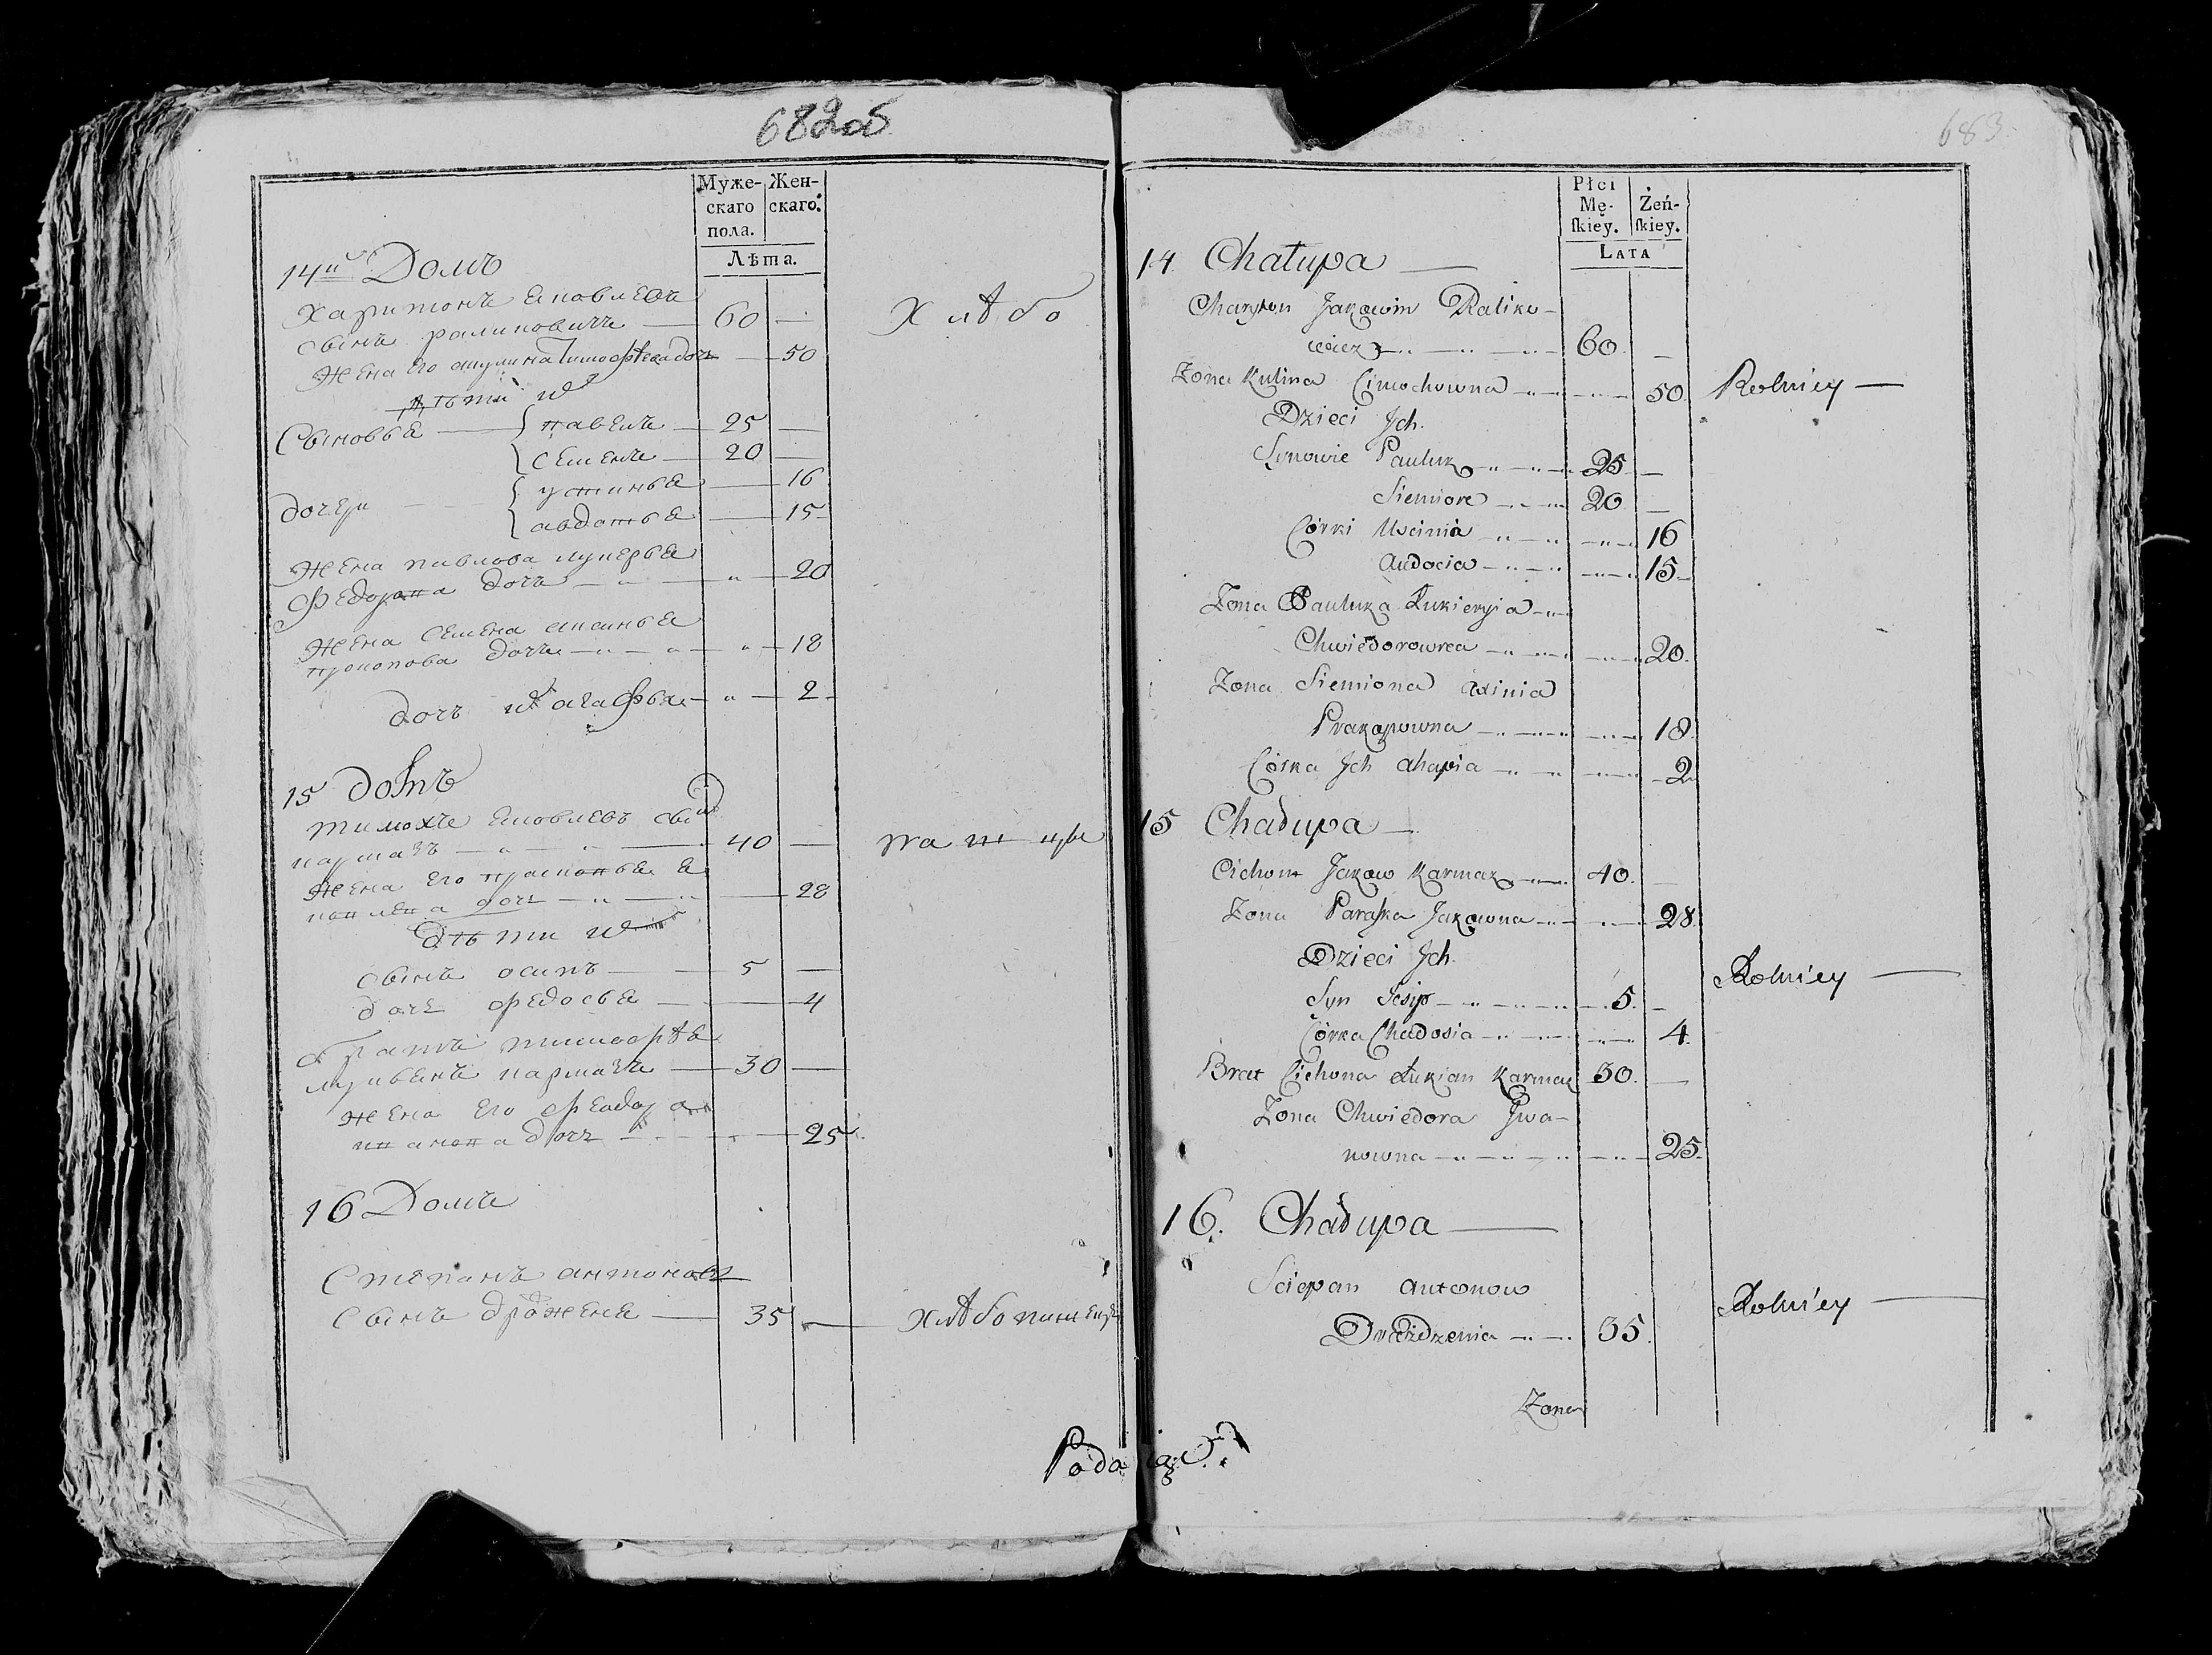 682об
Муже- Жен-
скаго скаго.
пола.
Лѣта.
14й Домъ
Харитонъ яковлевъ
сынъ раликовичъ — 60 —
Жена его акулина Тимофѣева дочь — 50
дѣти их
Сыновья — павелъ — 25 —
семенъ — 20 —
дочери устинья — 16
авдотья — 15
Жена павлова лукерья
федорова дочь — 20
Жена семена аксинья
прокопова дочь — 18
дочь их агафья — 2
Хлѣбо
15 домъ
тимохъ яковлевъ сынъ
кармазъ — 40 —
Жена его
дочь — 28
дѣти их
сынъ осипъ — 5 —
дочь федосья — 4
братъ тимофѣя
лукьянъ кармазъ — 30 —
жена его феодора
иванова дочь — 25
16 Домъ
Степанъ антоновъ
сынъ — 35 —
683
Płci
Mę- Żeń-
ſkiey. ſkiey.
LATA
14 Chałupa —
Charyton Jakowin Raliko-
wicz 60. —
Zona Kulina Cimochowna 50. Rolniey —
Dzieci Jch.
Synowie Pauluk 25. —
Siemion 20 —
Córki Uscinia 16
Audocia 15
Zona Pauluka Łukieryia
Chwiedorowna 20.
Zona Siemiona Axinia
Prakopowna 18.
Córka Jch Ahapia 2
15 Chałupa —
Cichon Jakow Karmaz 40. —
Zona Paraska Jakowna 28.
Dzieci Jch.
Rolniey —
Syn Josip 5. —
Córka Chadosia 4.
Brat Cichona Łukian Karmaz 30. —
Zona Chwiedora Jwa-
nowna 25.
16. Chałupa —
Sciepan Antonow
Rolniey —
35.
Zona